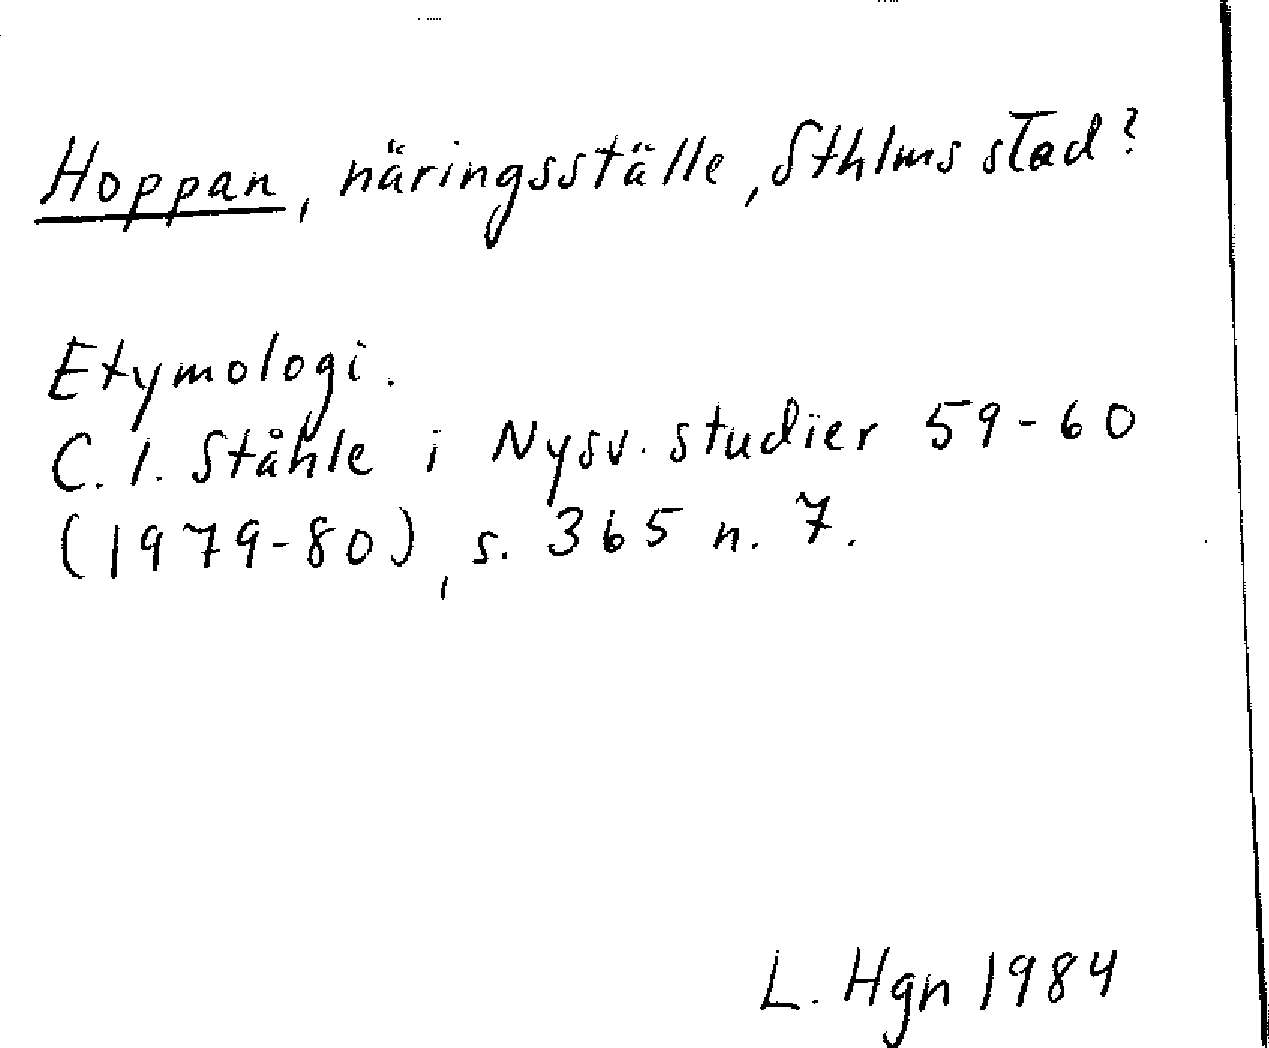 Hoppan, näringsställe, Sthlms stad?
Etymologi.
C. I. Ståhle i Nysv. studier 59-60
(1979-80), s. 365 n. 7.
L. Hgn 1984